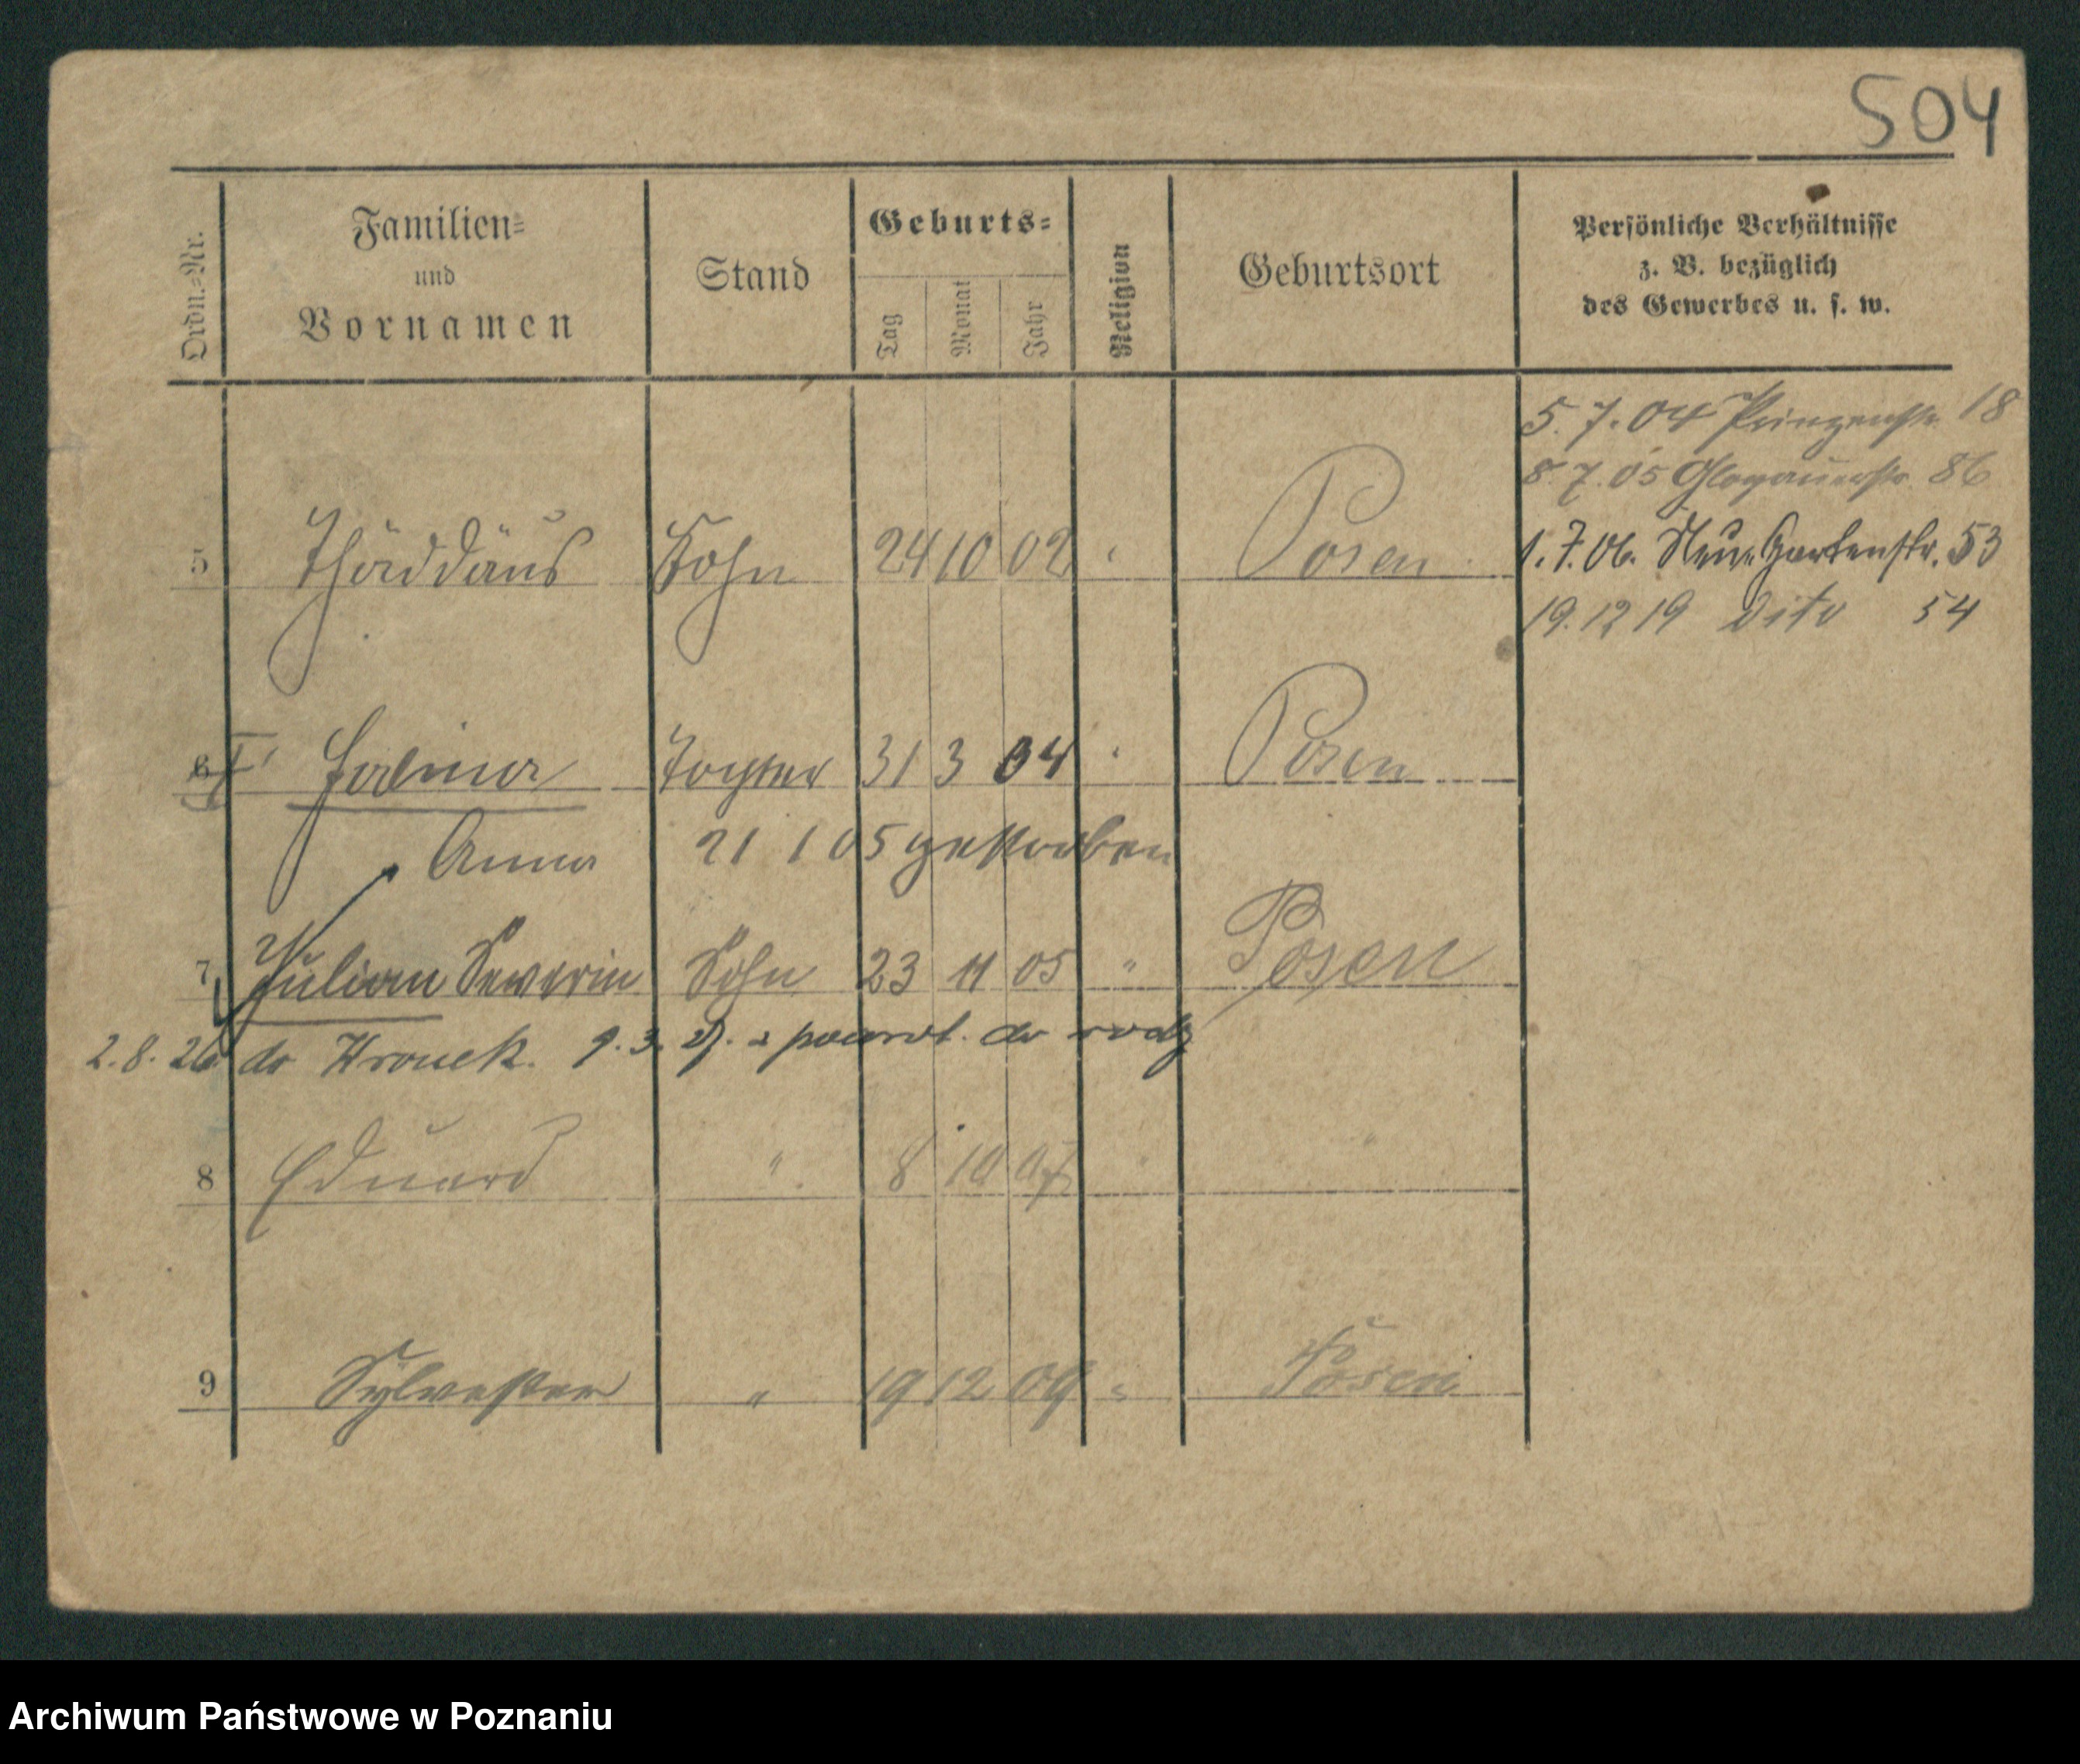 504
Ordn.-Nr.
Familien- und Vornamen
Stand
Geburts-
Tag
Monat
Jahr
Religion
Geburtsort
Persönliche Verhältnisse
z. B. bezüglich
des Gewerbes u. s. w.
5.7.04 Prinzenstr. 18
8.7.05 Glogauerstr. 86
5 Thaddäus Sohn 24 10 02 " Posen
1.7.06. Neue Gartenstr. 53
19.12 19 dito 54
6 Tochter 31 3 04 " Posen
Anna 21 1 05 gestorben
7 Julian Severin Sohn 23 11 05 " Posen
2.8.26 do 9.3. do
8 Eduard " 8 10 07 " "
9 Sylvester " 19 12 09 " Posen
Archiwum Państwowe w Poznaniu